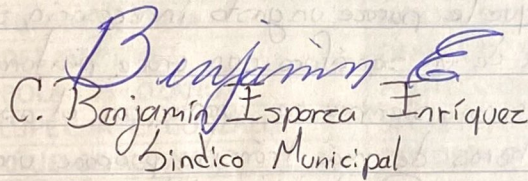 Benjamin E
C. Benjamín Isporza Inríquez
Sindico Municipal